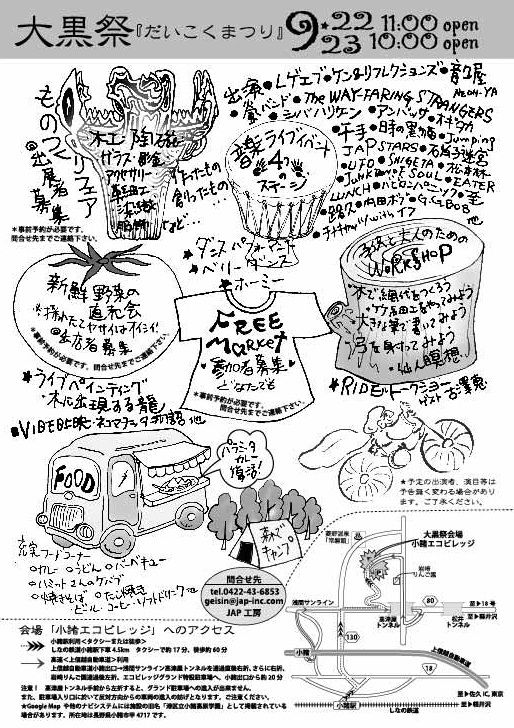 大黒祭『だいこくまつり』9★22 11:00 open
23 10:00 open
ものづくりフェア
@出展者募集
木工 陶磁
ガラス 彫金
アクセサリー
革細工
染織
作ったもの
創ったもの…
など…
＊事前予約が必要です。
問合せ先までご連絡下さい。
音楽ライブイベント
4つのステージ
★ダンスパフォーマンス
★ベリーダンス
★ホーミー
出演
●レゲエブ●ケン&リフレクションズ●音屋
NEOH-YA
●THE WAY-FARING STRANGERS
●シバハリケン●アンバッサ●オギタカ
●千手●日本の黒い夏●Jumping
JAP STARS
●UFO●SHIGETA●
●JunkDance SOUL●EATER
LUNCH●
●踏絵●内田ボブ●G.G.BOB
他
新鮮野菜の
直売会
採れたてヤサイはオイシイ!
@出店者募集
＊事前予約が必要です。
問合せ先までご連絡下さい。
FREE
Market
参加者募集
どなたでも
＊事前予約が必要です。
問合せ先までご連絡下さい。
子供と大人のための
WORKSHOP
・竹細工をやってみよう
・大きな筆で書いてみよう
・弓を射ってみよう
・仙人瞑想
★ライブペインティング
木に出現する龍
★RIDEトークショー
ゲスト
★VIDEO上映・ネコマンダラ物語 他
パラシュタ
カレー
復活!
FOOD
森で
キャンプ
＊予定の出演者、演目等は
予告無く変わる場合があり
ます。ご了承ください。
充実フードコーナー
○カレー ○うどん ○バーベキュー
○ハミットさんのケバブ
○焼きそば ○たこ焼き
ビール・コーヒー・ソフトドリンク 他
問合せ先
tel.0422-43-6853
geisin@jap-inc.com
JAP 工房
大黒祭会場
小諸エコビレッジ
菱野温泉
「常盤館」
岩崎
りんご園
浅間サンライン
至▶18号
80
高津屋
トンネル
松井
トンネル
至▶軽井沢
小諸
130
上信越自動車道
18
小諸駅
しなの鉄道
至▶佐久IC,東京
至▶軽井沢
会場「小諸エコビレッジ」へのアクセス
小諸駅利用<タクシーまたは徒歩>
しなの鉄道小諸駅下車4.5km タクシーで約17分、徒歩約60分
高速<上信越自動車道>利用
上信越自動車道小諸出口→浅間サンライン高津屋トンネルを通過直後右折、さらに右折、
岩崎りんご園通過後左折、エコビレッジグランド特設駐車場へ、小諸出口から約20分
注意！ 高津屋トンネル手前から左折すると、グランド駐車場への進入が出来ません。
また、駐車場入り口において反対方向からの車両の進入の妨げとなります。ご注意ください。
★Google Map や他のナビシステムには施設の旧名「港区立小諸高原学園」として掲載されている
場合があります。所在地は長野県小諸市甲4717です。